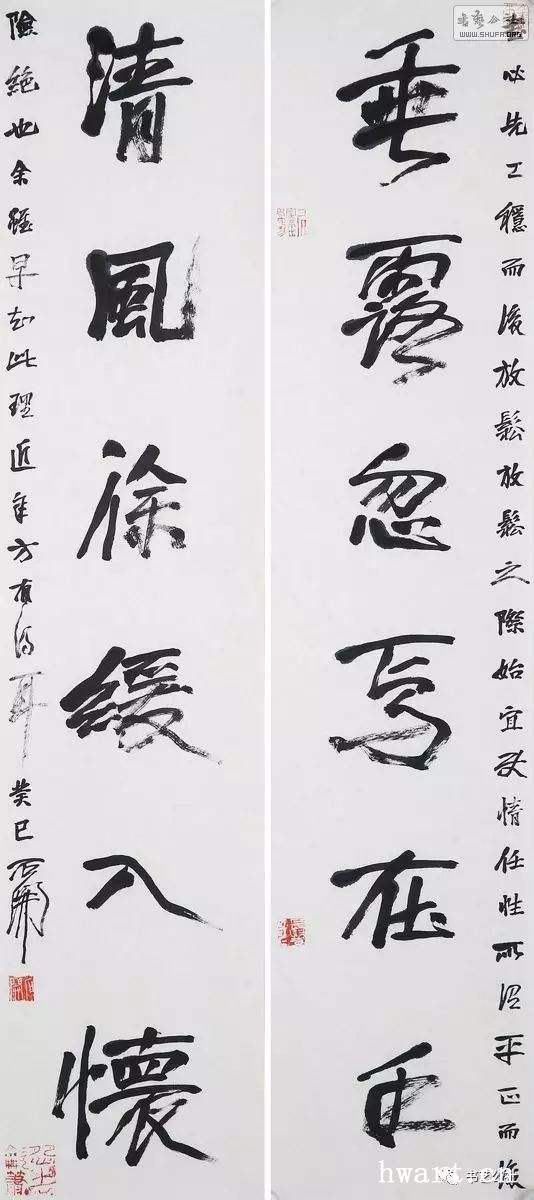 必先工穩而後放鬆放鬆之際始宜情任性所謂平正而後
垂露忽焉在手
清風徐緩入懷
險絕也余雖早知此理近年方有得耳癸巳石開
书艺公社
WWW.SHUFA.ORG
书艺公社
hwart.cn